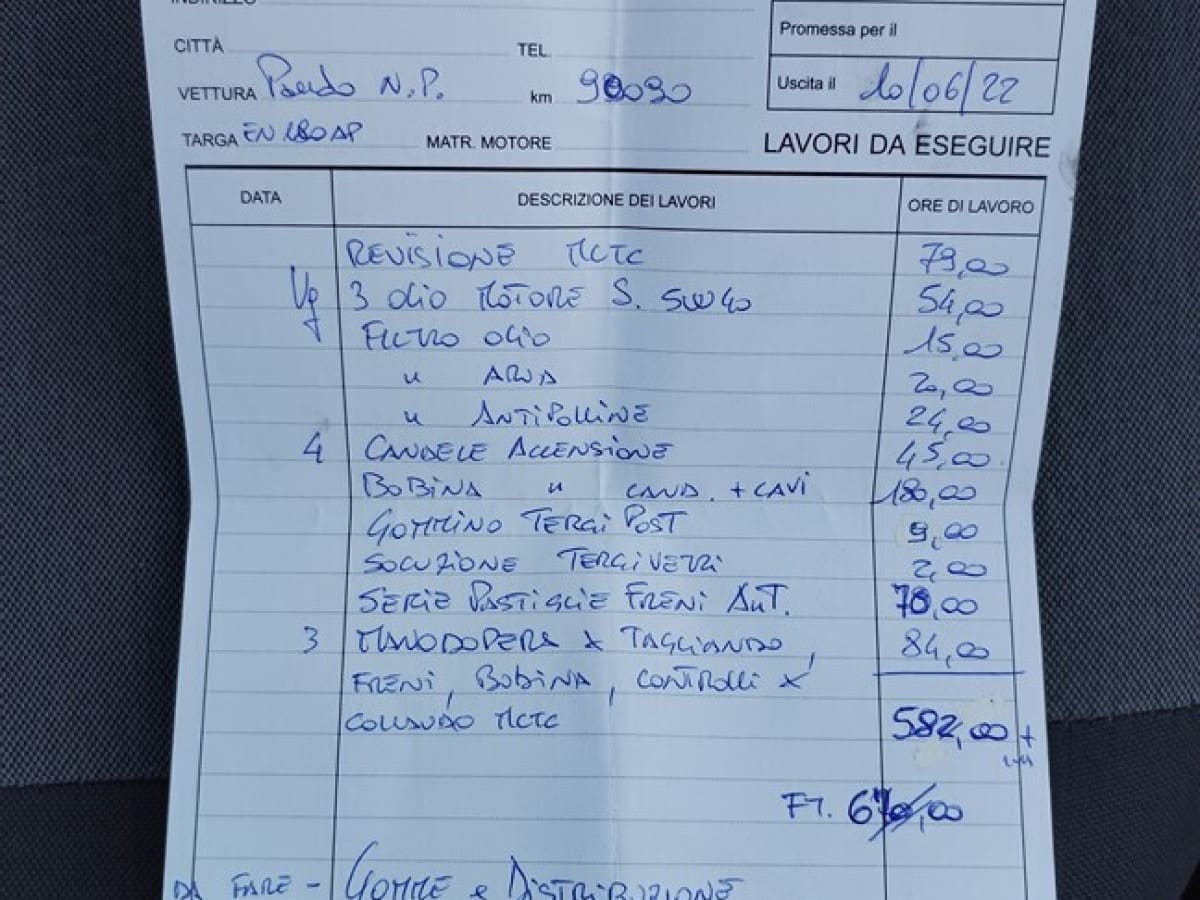 INDIRIZZO
CITTÀ TEL.
Promessa per il
VETTURA Panda N.P. km 90090
Uscita il 10/06/22
TARGA EN180AP MATR. MOTORE LAVORI DA ESEGUIRE
DATA DESCRIZIONE DEI LAVORI ORE DI LAVORO
REVISIONE MCTC 79,00
3 OLIO MOTORE S. 5W40 54,00
FILTRO OLIO 15,00
" ARIA 20,00
" ANTIPOLLINE 24,00
4 CANDELE ACCENSIONE 45,00
BOBINA " CAND. + CAVI 180,00
GOMMINO TERGI POST 9,00
SOLUZIONE TERGIVETRI 2,00
SERIE PASTIGLIE FRENI ANT. 70,00
3 MANODOPERA X TAGLIANDO, 84,00
FRENI, BOBINA, CONTROLLI X
COLLAUDO MCTC 582,00 +
FT. ,00
DA FARE - GOMME e DISTRIBUZIONE